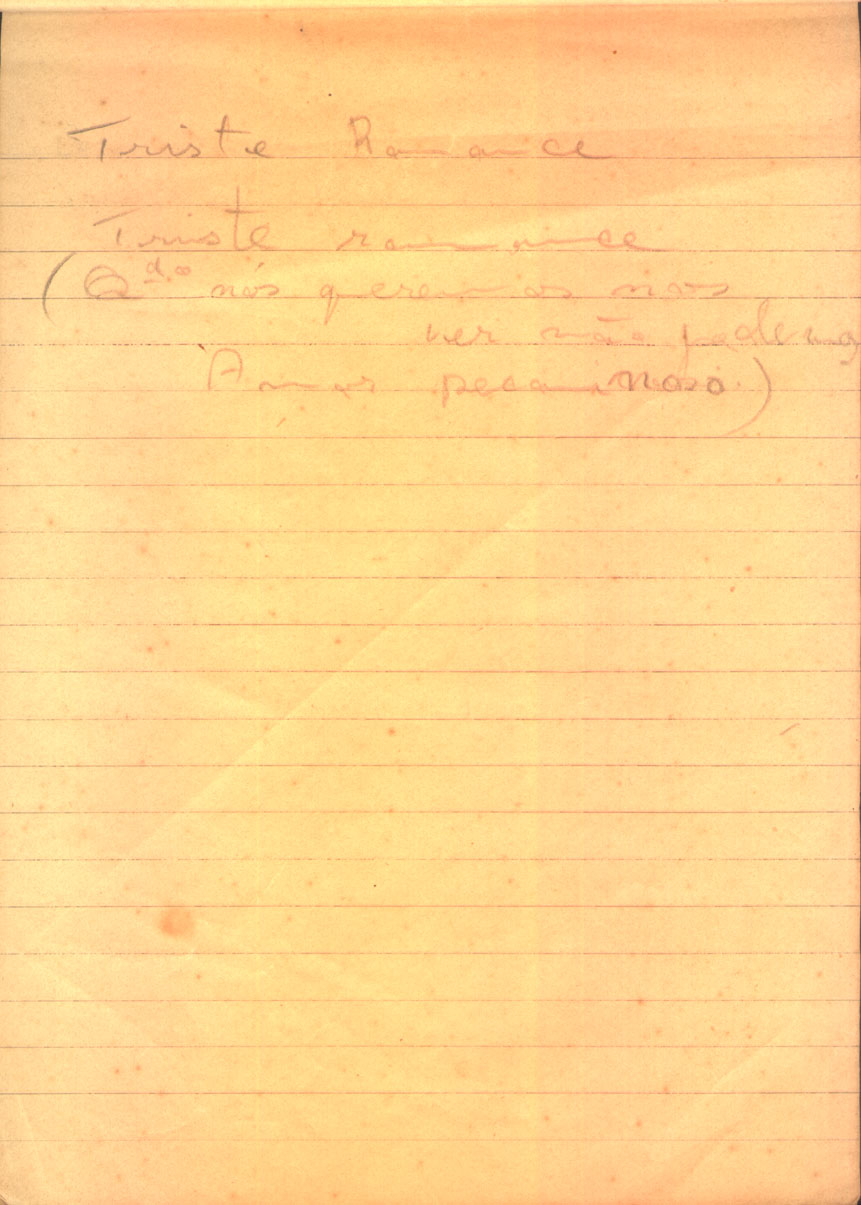 Triste Romance
Triste romance
(Qdo nós queremos nos
ver não podemos
Amor pecaminoso.)